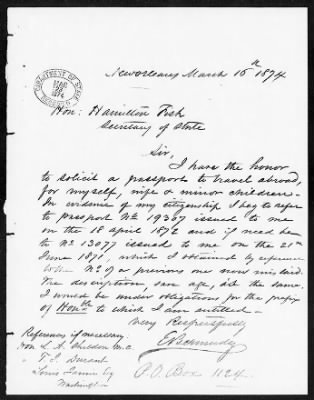 DEPARTMENT OF STATE
MAR
1874
RECEIVED
New Orleans March 16th 1874
Hon: Hamilton Fish
Secretary of State
Sir,
I have the honor
to solicit a passport to travel abroad,
for myself, wife & minor children -
In evidence of my citizenship I beg to refer
to passport No 19307 issued to me
on the 18 april 1872 and if need be
to No 13077 issued to me on the 21st
June 1871, which I obtained by
No of a previous one now mislaid.
The description, save age, is the same.
I would be under obligations for the prefix
of Honble to which I am entitled -
Very Respectfully
E Bermudez
P.O. Box 1124.
References if necessary
Hon L. A. Sheldon M.C.
" T. J. Durant
Louis Janin Esq
Washington